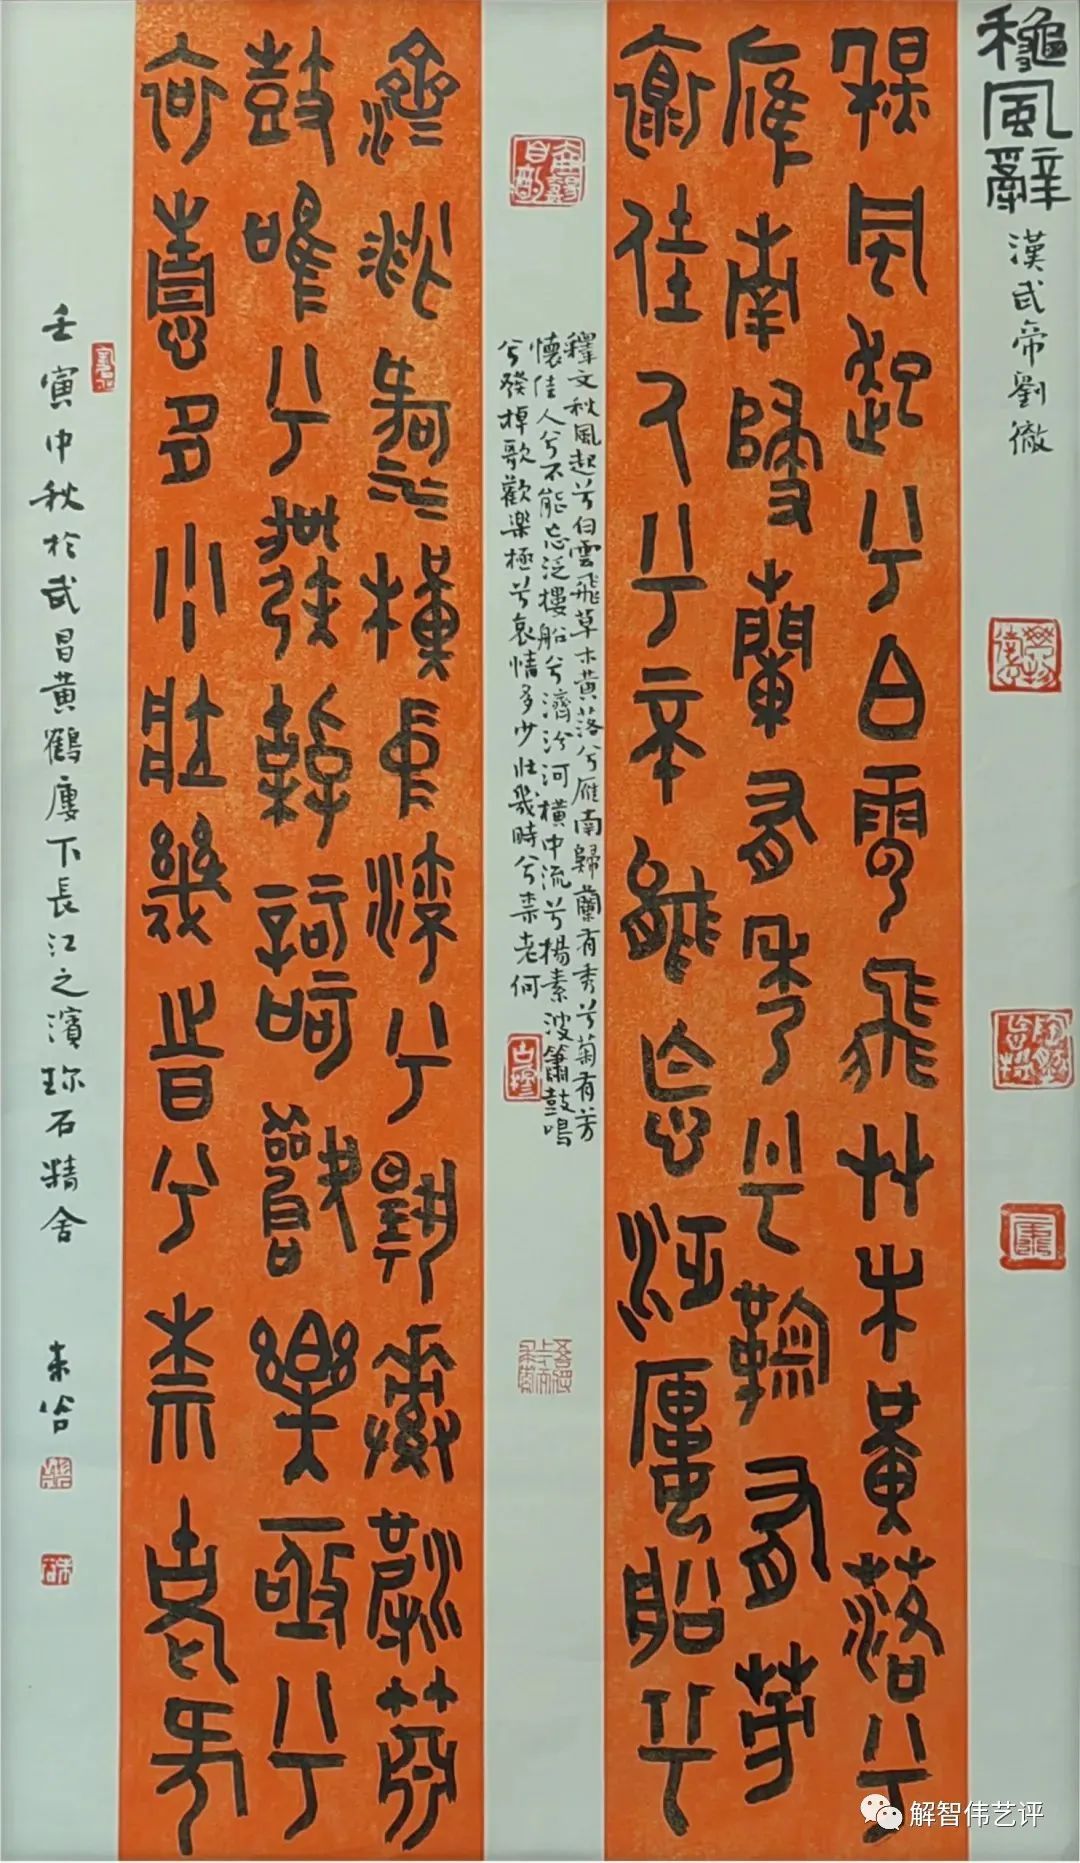 龝風辭
漢武帝劉徹
秋風起兮白雲飛艸木黃落兮
雁南歸蘭有秀兮菊有芳
懷佳人兮不能忘泛樓船兮
釋文秋風起兮白雲飛草木黃落兮雁南歸蘭有秀兮菊有芳
懷佳人兮不能忘泛樓船兮濟汾河橫中流兮楊素波簫鼓鳴
兮發棹歌歡樂極兮哀情多少壯幾時兮柰老何
濟汾河橫中流兮揚素波簫
鼓鳴兮發棹歌歡樂極兮
哀情多少壯幾時兮柰老何
壬寅中秋於武昌黃鶴廔下長江之濱珎石精舍
解智伟艺评